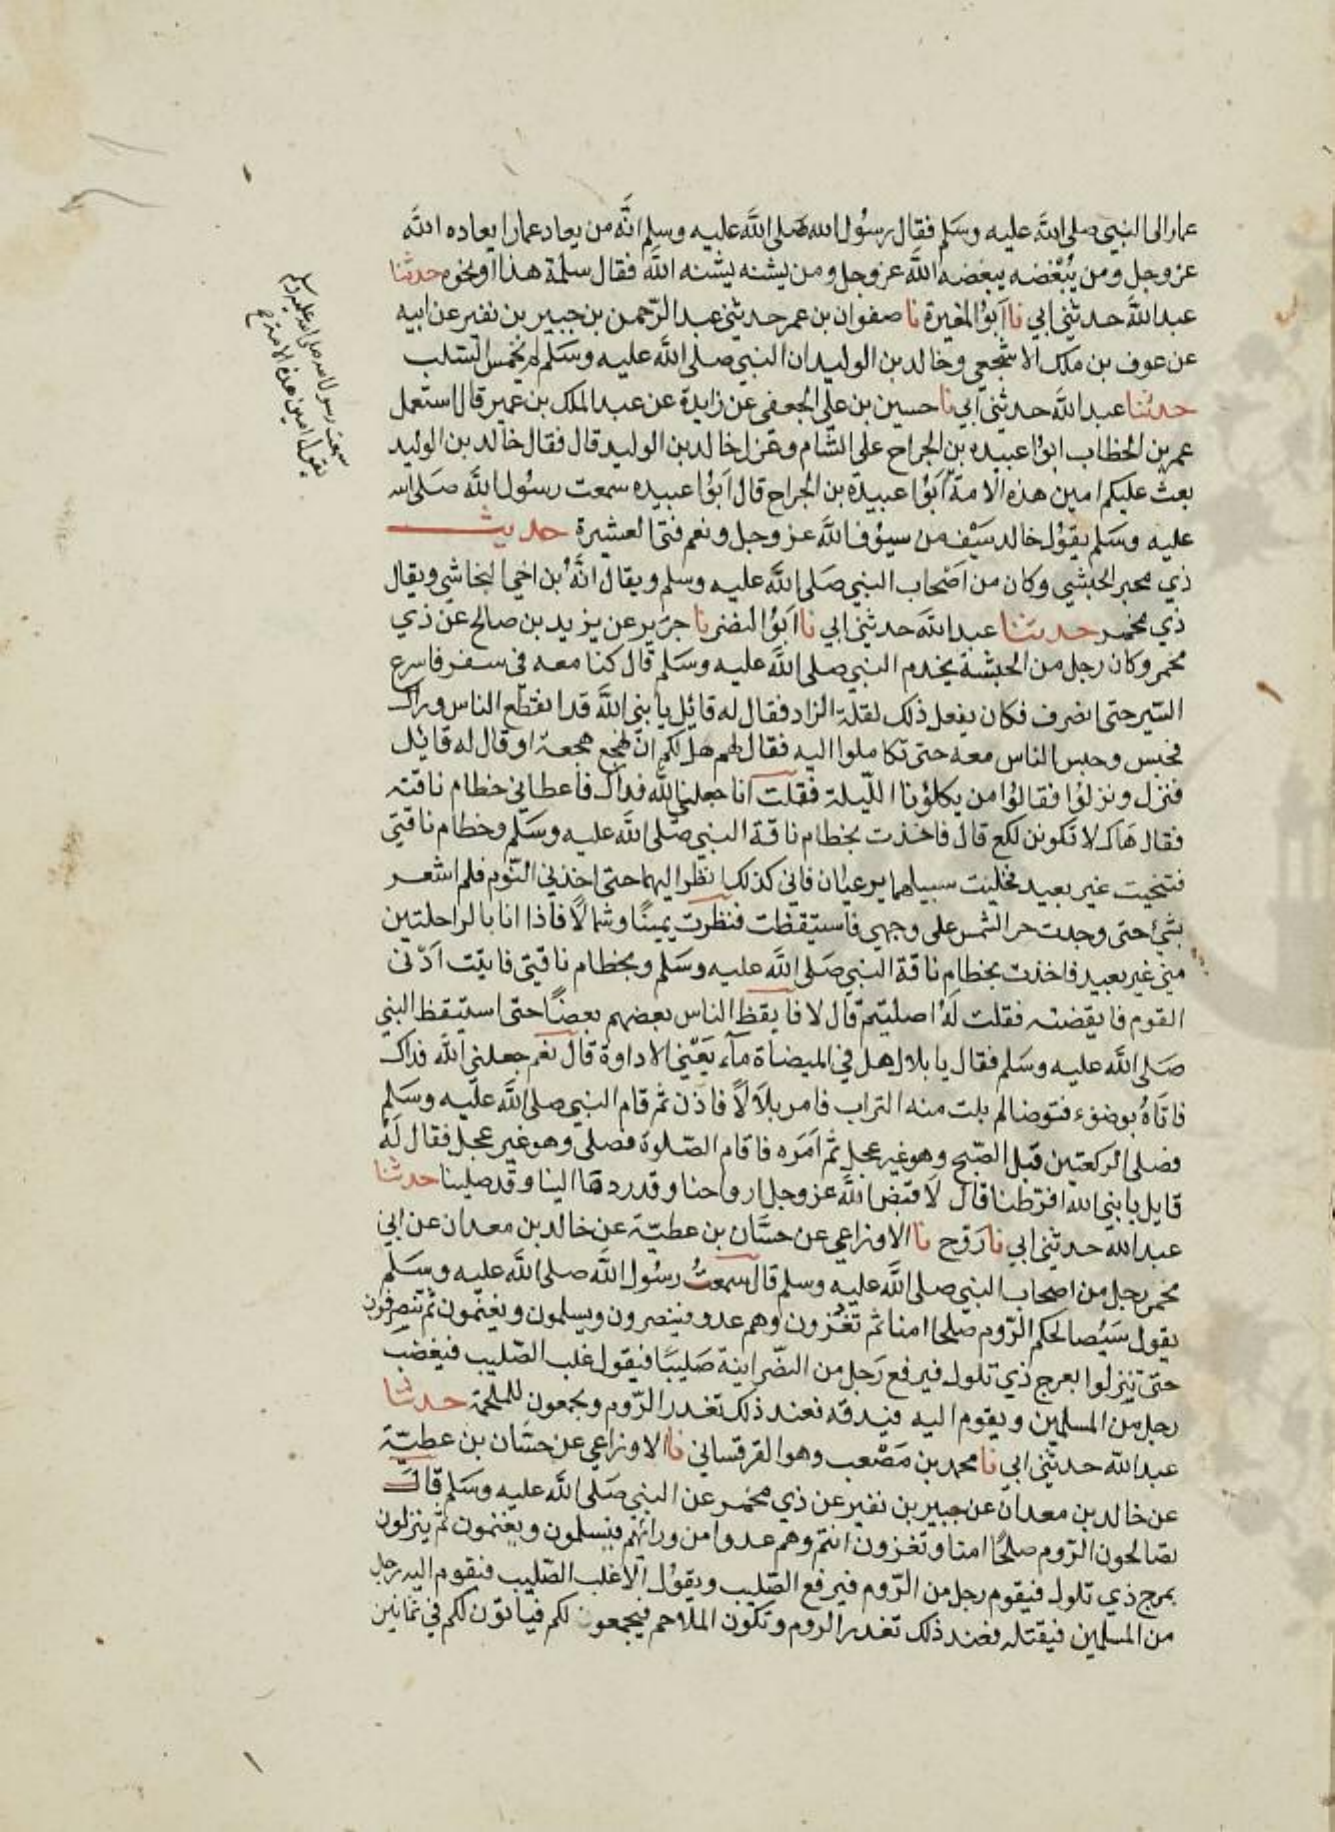 عمار الى النبي صلى الله عليه وسلم فقال رسول الله صلى الله عليه وسلم انه من يعاد عمارا يعاده الله
عز وجل ومن يبغضه يبغضه الله عز وجل ومن يشنه يشنه الله فقال سلمة هذا او نحوه حدثنا
عبد الله حدثني ابي نا ابو المغيرة نا صفوان بن عمر حدثني عبد الرحمن بن جبير بن نفير عن ابيه
عن عوف بن ملك الاشجعي وخالد بن الوليد ان النبي صلى الله عليه وسلم لم يخمس السلب
حدثنا عبد الله حدثني ابي نا حسين بن علي الجعفى عن زايدة عن عبد الملك بن عمير قال استعمل
عمر بن الخطاب ابوا عبيده بن الجراح على الشام وعزل خالد بن الوليد قال فقال خالد بن الوليد
بعث عليكم امين هذه الامة ابوا عبيدة بن الجراح قال ابوا عبيده سمعت رسول الله صلى الله
عليه وسلم يقول خالد سيف من سيوف الله عز وجل ونعم فتى العشيرة حديث
ذي مخبر الحبشي وكان من اصحاب النبي صلى الله عليه وسلم ويقال انه بن اخي النجاشي ويقال
ذي مخمر حدثنا عبد الله حدثني ابي نا ابو النضر نا جرير عن يزيد بن صالح عن ذي
مخمر وكان رجل من الحبشة يخدم النبي صلى الله عليه وسلم قال كنا معه في سفر فاسرع
السير حتى انصرف فكان يفعل ذلك لقلة الزاد فقال له قائل يا نبي الله قد انقطع الناس وراك
فحبس وحبس الناس معه حتى تكاملوا اليه فقال لهم هل لكم ان نهجع هجعة او قال له قائل
فنزل ونزلوا فقالوا من يكلؤنا الليلة فقلت انا جعلني الله فداك فاعطاني خطام ناقته
فقال هاك لا تكونن لكع قال فاخذت بخطام ناقة النبي صلى الله عليه وسلم وخطام ناقتي
فتنحيت غير بعيد فخليت سبيلهما يرعيان فاني كذلك انظر اليهما حتى اخذني النوم فلم اشعر
بشئ حتى وجدت حر الشمس على وجهي فاستيقظت فنظرت يمينًا وشمالًا فاذا انا بالراحلتين
مني غير بعيد فاخذت بخطام ناقة النبي صلى الله عليه وسلم وبخطام ناقتي فاتيت ادنى
القوم فايقضته فقلت له اصليتم قال لا فايقظ الناس بعضهم بعضًا حتى استيقظ النبي
صلى الله عليه وسلم فقال يا بلال هل في الميضاة ماء يعني الاداوة قال نعم جعلني الله فداك
فاتاه بوضوء فتوضا لم يلت منه التراب فامر بلالًا فاذن ثم قام النبي صلى الله عليه وسلم
فصلى الركعتين قبل الصبح وهو غير عجل ثم امره فاقام الصلوة فصلى وهو غير عجل فقال له
قايل يا نبي الله افرطنا قال لا قبض الله عز وجل ارواحنا وقد ردها الينا وقد صلينا حدثنا
عبد الله حدثني ابي نا روح نا الاوزاعي عن حسان بن عطية عن خالد بن معدان عن ابي
مخمر رجل من اصحاب النبي صلى الله عليه وسلم قال سمعت رسول الله صلى الله عليه وسلم
يقول سيصالحكم الروم صلحا امنا ثم تغزون وهم عدو فينصرون ويسلمون ويغنمون ثم تنصرفون
حتى تنزلوا بمرج ذي تلول فيرفع رجل من النصرانية صليبًا فيقول غلب الصليب فيغضب
رجل من المسلمين ويقوم اليه فيدقه فعند ذلك تغدر الروم ويجمعون للملحمة حدثنا
عبد الله حدثني ابي نا محمد بن مصعب وهو القرقساني نا الاوزاعي عن حسان بن عطية
عن خالد بن معدان عن جبير بن نفير عن ذي مخمر عن النبي صلى الله عليه وسلم قال
تصالحون الروم صلحًا امنا وتغزون انتم وهم عدوا من ورائهم فتسلمون وتغنمون ثم ينزلون
بمرج ذي تلول فيقوم رجل من الروم فيرفع الصليب ويقول الا غلب الصليب فيقوم اليه رجل
من المسلمين فيقتله فعند ذلك تغدر الروم وتكون الملاحم فيجمعون لكم فياتون لكم في ثمانين
سمعت رسول الله صلى الله عليه وسلم
يقول امين هذه الامة